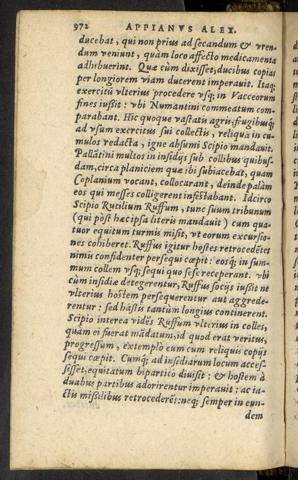 972 APPIANVS ALEX.
ducebat, qui non prius ad secandum & vren-
dum veniunt, quàm loco affecto medicamenta
adhibuerint. Quæ cùm dixisset, ducibus copias
per longiorem viam ducerent imperauit. Itaq;
exercitū vlterius procedere vsq; in Vacceorum
fines iussit: vbi Numantini commeatum com-
parabant. Hic quoque vastatis agris, frugibusq;
ad vsum exercitus sui collectis, reliqua in cu-
mulos redacta, igne absumi Scipio mandauit.
Pallātini multos in insidijs sub collibus quibus-
dam, circa planiciem quæ ibi subiacebat, quam
Coplanium vocant, collocarant, deinde palàm
eos qui messes colligerent infestabant. Idcirco
Scipio Rutilium Ruffum, tunc suum tribunum
(qui pòst hæc ipsa literis mandauit) cum qua-
tuor equitum turmis misit, vt eorum excursio-
nes cohiberet. Ruffus igitur hostes retrocedētes
nimis confidenter persequi cœpit: eosq; in sum-
mum collem vsq; sequi quo sese receperant. vbi
cùm insidiæ detegerentur, Ruffus socijs iussit ne
vlterius hostem persequerentur aut aggrede-
rentur: sed hastis tantùm longius continerent.
Scipio interea vidēs Ruffum vlterius in colles,
quàm ei fuerat mādatum, id quod erat veritus,
progressum, extemplò eum cum reliquis copijs
sequi cœpit. Cumq; ad insidiarum locum acces-
sisset, equitatum bipartitò diuisit: & hostem à
duabus partibus adorirentur imperauit: ac ia-
ctis missilibus retrocederēt: neq; semper in eun-
dem